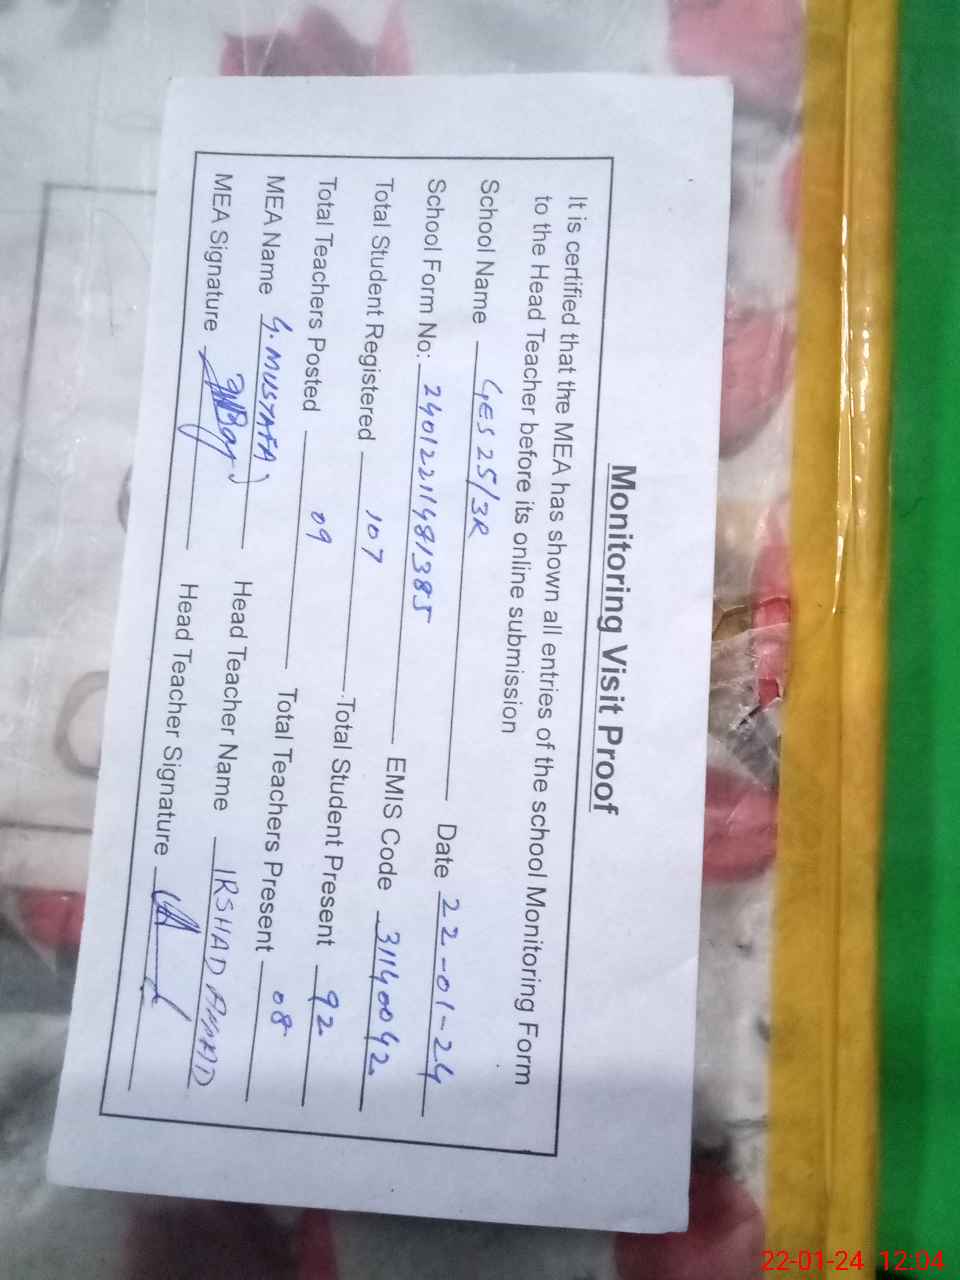 Monitoring Visit Proof
It is certified that the MEA has shown all entries of the school Monitoring Form
to the Head Teacher before its online submission
School Name GES 25/3R Date 22-01-24
School Form No: 2401221481385 EMIS Code 31140042
Total Student Registered 107 Total Student Present 92
Total Teachers Posted 09 Total Teachers Present 08
MEA Name G. MUSTAFA Head Teacher Name IRSHAD AHMAD
MEA Signature Head Teacher Signature
22-01-24 12:04